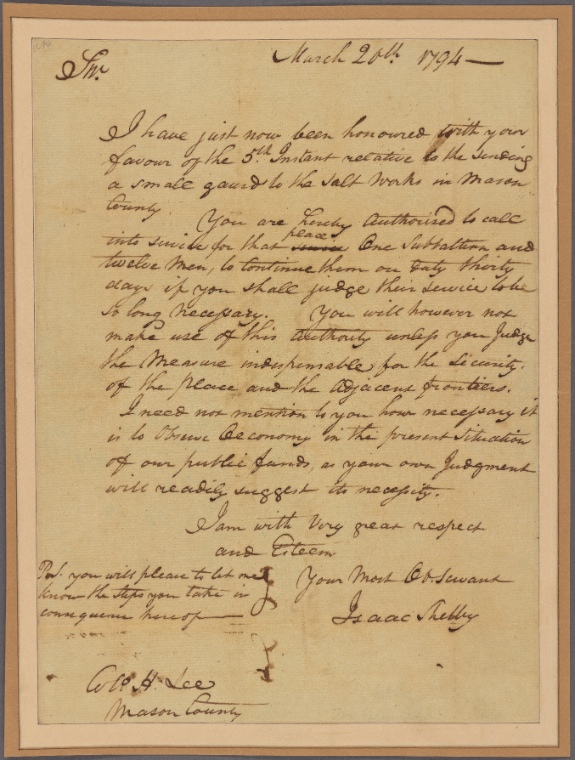 March 20th. 1794
Sir.
I have just now been honoured with your
favour of the 5th. Instant relative to the sending
a small gaurd to the Salt Works in Mason
County
You are hereby Authorised to call
place
into service for that service One Subbaltron and
twelve Men, to continue them on duty thirty
days if you shall judge their service to be
so long necessary. You will however not
make use of this Authority unless you Judge
the Measure indispensable for the Security.
of the place and the adjacent frontiers.
I need not mention to you how necessary it
is to Observe Oeconomy in the present Situation
of our public funds, as your own Judgment
will readily suggest its necessity.
I am with Very great respect
and Esteem
Your Most Ob. Servant
Isaac Shelby
Post. you will please to let me
know the steps you take in
consequence hereof
Colo. H. Lee
Mason County